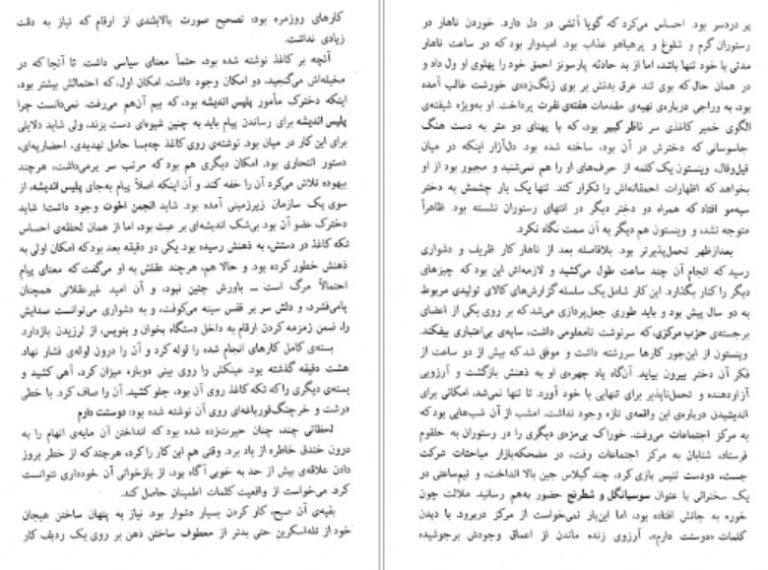 کارهای روزمره بود: تصحیح صورت بالابلندی از ارقام که نیاز به دقت
زیادی نداشت.
آنچه بر کاغذ نوشته شده بود، حتماً معنای سیاسی داشت. تا آنجا که در
مخیله‌اش می‌گنجید، دو امکان وجود داشت. امکان اول، که احتمالش بیشتر بود،
اینکه دخترک مأمور پلیس اندیشه بود، که بیم آن هم می‌رفت. نمی‌دانست چرا
پلیس اندیشه برای رساندن پیام باید به چنین شیوه‌ای دست بزند، ولی شاید دلایلی
برای این کار در میان بود. نوشته‌ی روی کاغذ چه‌بسا حامل تهدیدی، احضاریه‌ای،
دستور انتحاری بود. امکان دیگری هم بود که مرتب سر برمی‌داشت، هرچند
بیهوده تلاش می‌کرد آن را خفه کند و آن اینکه اصلاً پیام به‌جای پلیس اندیشه، از
سوی یک سازمان زیرزمینی آمده بود. شاید انجمن اخوت وجود داشت! شاید
دخترک عضو آن بود. بی‌شک اندیشه‌ای بر عبث بود، اما از همان لحظه‌ی احساس
تکه کاغذ در دستش، به ذهنش رسیده بود. یکی دو دقیقه بعد بود که امکان اولی به
ذهنش خطور کرده بود. و حالا هم، هرچند عقلش به او می‌گفت که معنای پیام
احتمالاً مرگ است ... باورش چنین نبود، و آن امید غیرعقلانی همچنان
پامی‌فشرد، و دلش سر بر قفس سینه می‌کوفت، و به دشواری می‌توانست صدایش
را، ضمن زمزمه کردن ارقام به داخل دستگاه بخوان و بنویس، از لرزیدن بازدارد.
بسته‌ی کامل کارهای انجام شده را لوله کرد و آن را درون لوله‌ی فشار نهاد.
هشت دقیقه گذشته بود. عینکش را روی بینی دوباره میزان کرد، آهی کشید و
بسته‌ی دیگری را که تکه کاغذ روی آن بود، جلو کشید. آن را صاف کرد. با خطی
درشت و خرچنگ‌قورباغه‌ای روی آن نوشته شده بود: دوستت دارم
لحظاتی چند، چنان حیرت‌زده شده بود که انداختن آن مایه‌ی اتهام را به
درون خندق خاطره از یاد برد. وقتی هم این کار را کرد، هرچند که از خطر بروز
دادن علاقه‌ی بیش از حد به خوبی آگاه بود، از بازخوانی آن خودداری نتوانست
کرد. می‌خواست از واقعیت کلمات اطمینان حاصل کند.
بقیه‌ی آن صبح، کار کردن بسیار دشوار بود. نیاز به پنهان ساختن هیجان
خود از تله‌اسکرین حتی بدتر از معطوف ساختن ذهن بر روی یک ردیف کار
پر دردسر بود. احساس می‌کرد که گویا آتشی در دل دارد. خوردن ناهار در
رستوران گرم و شلوغ و پرهیاهو عذاب بود. امیدوار بود که در ساعت ناهار
مدتی با خود تنها باشد، اما از بد حادثه پارسونز احمق خود را پهلوی او ول داد و
در همان حال که بوی تند عرق بدنش بر بوی زنگ‌زده‌ی خورشت غالب آمده
بود، به وراجی درباره‌ی تهیه‌ی مقدمات هفته‌ی نفرت پرداخت. او به‌ویژه شیفته‌ی
الگوی خمیر کاغذی سر ناظر کبیر بود، که با پهنای دو متر به دست هنگ
جاسوسانی که دخترش در آن بود، ساخته شده بود. دل‌آزار اینکه در میان
قیل‌وقال، وینستون یک کلمه از حرف‌های او را هم نمی‌شنید و مجبور بود از او
بخواهد که اظهارات احمقانه‌اش را تکرار کند. تنها یک بار چشمش به دختر
سیه‌مو افتاد که همراه دو دختر دیگر در انتهای رستوران نشسته بود. ظاهراً
متوجه نشد، و وینستون هم دیگر به آن سمت نگاه نکرد.
بعدازظهر تحمل‌پذیرتر بود. بلافاصله بعد از ناهار کار ظریف و دشواری
رسید که انجام آن چند ساعت طول می‌کشید و لازمه‌اش این بود که چیزهای
دیگر را کنار بگذارد. این کار شامل یک سلسله گزارش‌های کالای تولیدی مربوط
به دو سال پیش بود و باید طوری جعل‌پردازی می‌شد که بر روی یکی از اعضای
برجسته‌ی حزب مرکزی، که سرنوشت نامعلومی داشت، سایه‌ی بی‌اعتباری بیفکند.
وینستون از این‌جور کارها سررشته داشت و موفق شد که بیش از دو ساعت از
فکر آن دختر بیرون بیاید. آنگاه یاد چهره‌ی او به ذهنش بازگشت و آرزویی
آزاردهنده و تحمل‌ناپذیر برای تنهایی با خود آورد. تا تنها نمی‌شد، امکانی برای
اندیشیدن درباره‌ی این واقعه‌ی تازه وجود نداشت. امشب از آن شب‌هایی بود که
به مرکز اجتماعات می‌رفت. خوراک بی‌مزه‌ی دیگری را در رستوران به حلقوم
فرستاد، شتابان به مرکز اجتماعات رفت، در مضحکه‌بازار مباحثات شرکت
جست، دودست تنیس بازی کرد، چند گیلاس جین بالا انداخت، و نیم‌ساعتی در
یک سخنرانی با عنوان سوسیانگل و شطرنج حضور به‌هم رسانید. ملالت چون
خوره به جانش افتاده بود، اما این‌بار نمی‌خواست از مرکز دربرود. با دیدن
کلمات «دوستت دارم»، آرزوی زنده ماندن از اعماق وجودش برجوشیده